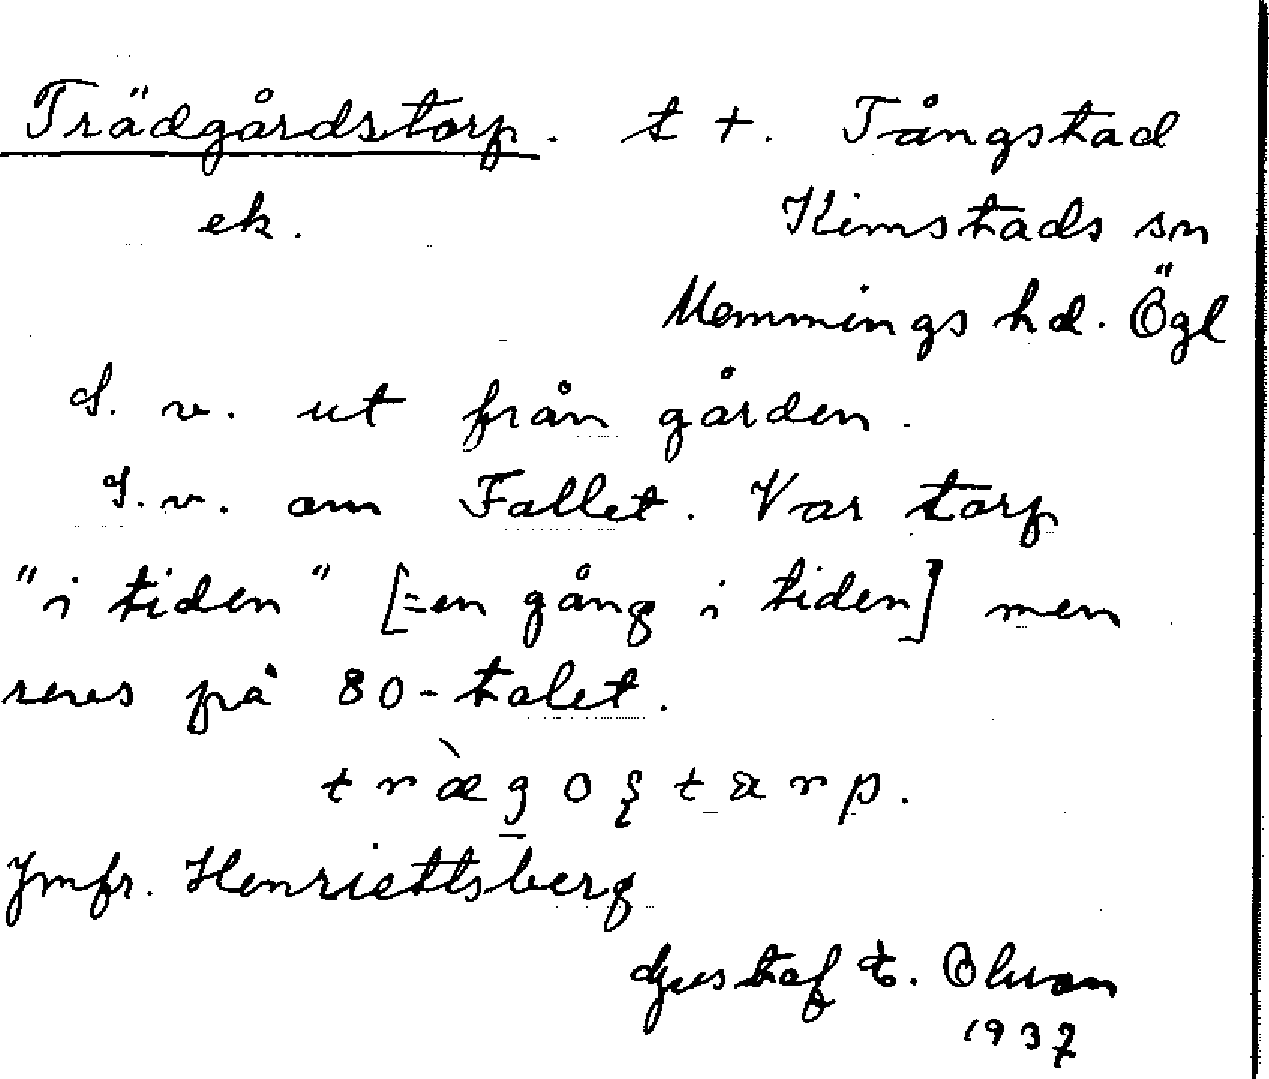 Trädgårdstorp. t t. Tångstad
ek. Kimstads sn
Memmings hd. Ögl
S. v. ut från gården.
S. v. om Fallet. Var torp
"i tiden" [=en gång i tiden] men
revs på 80-talet.
Jmfr. Henriettsberg
Gustaf E. Olson
1937